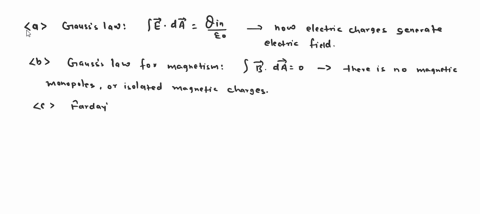 <a> Gauss's law: ∫ E⃗ . dA⃗ = Qin/ε₀ → how electric charges generate
electric field.
<b> Gauss's law for magnetism: ∫ B⃗ . dA⃗ = 0 → there is no magnetic
monopoles, or isolated magnetic charges.
<c> Farday